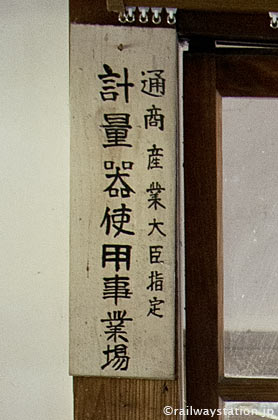 通商産業大臣指定
計量器使用事業場
©railwaystation.jp